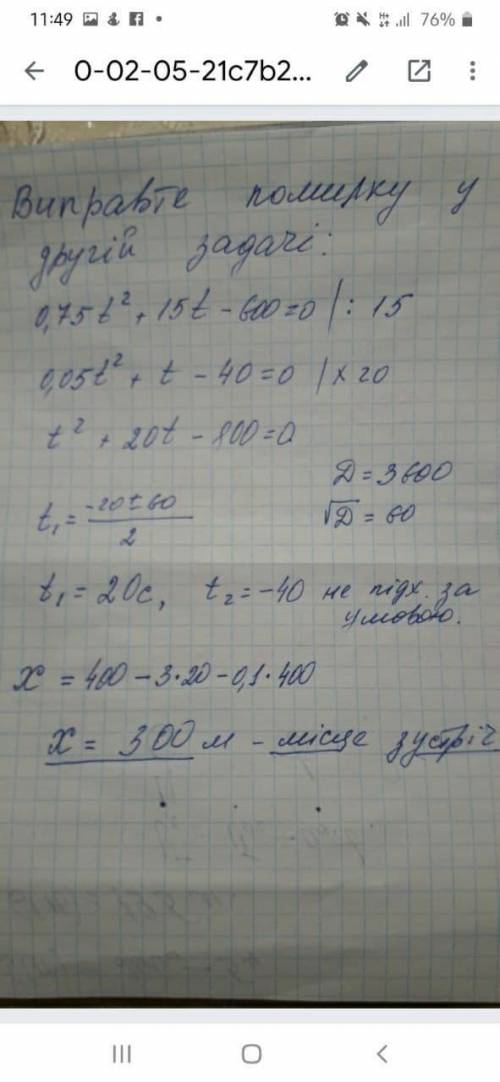 11:49 76%
0-02-05-21c7b2...
Виправте помилку у
другій задачі:
0,75t² + 15t - 600 = 0 |: 15
0,05t² + t - 40 = 0 | x 20
t² + 20t - 800 = 0
D = 3600
t₁ = -20 ± 60 / 2
√D = 60
t₁ = 20c, t₂ = -40 не підх. за
умовою.
x = 400 - 3·20 - 0,1·400
x = 300 м - місце зустріч